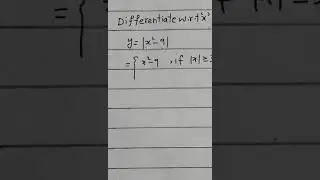 Differentiate w.r.t 'x'
y = |x²-9|
= { x²-9 , if |x| ≥ 3